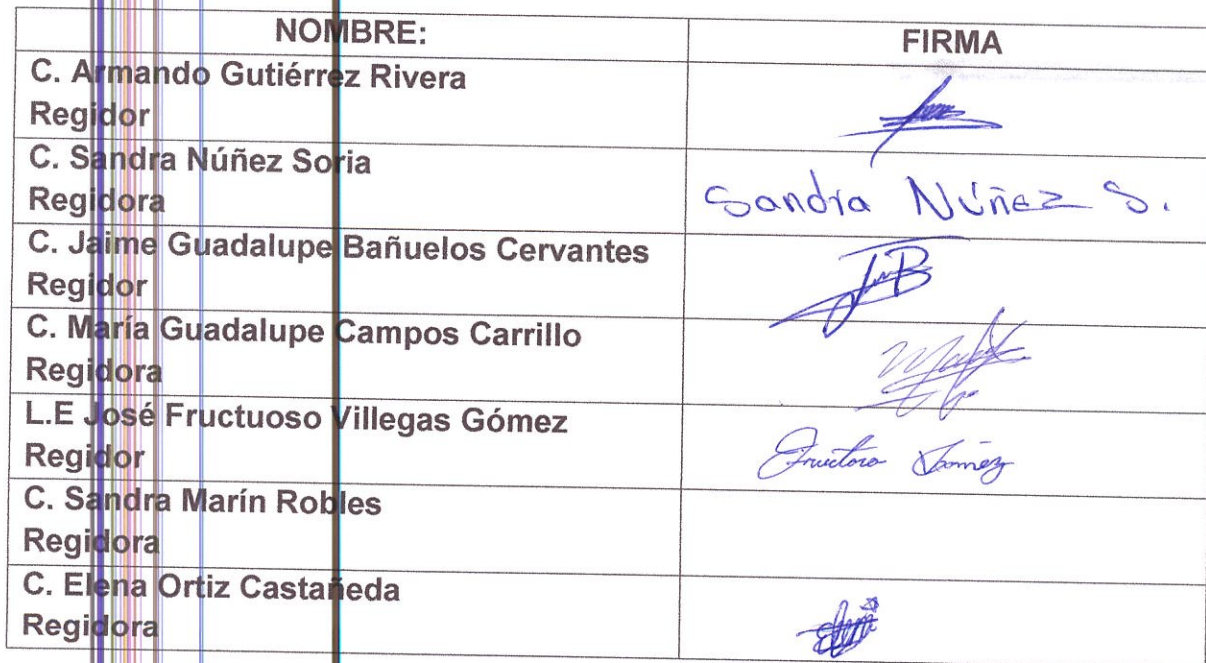 NOMBRE: FIRMA
C. Armando Gutiérrez Rivera
Regidor
C. Sandra Núñez Soria
Regidora
Sandra Núñez S.
C. Jaime Guadalupe Bañuelos Cervantes
Regidor
C. María Guadalupe Campos Carrillo
Regidora
L.E José Fructuoso Villegas Gómez
Regidor
C. Sandra Marín Robles
Regidora
C. Elena Ortiz Castañeda
Regidora